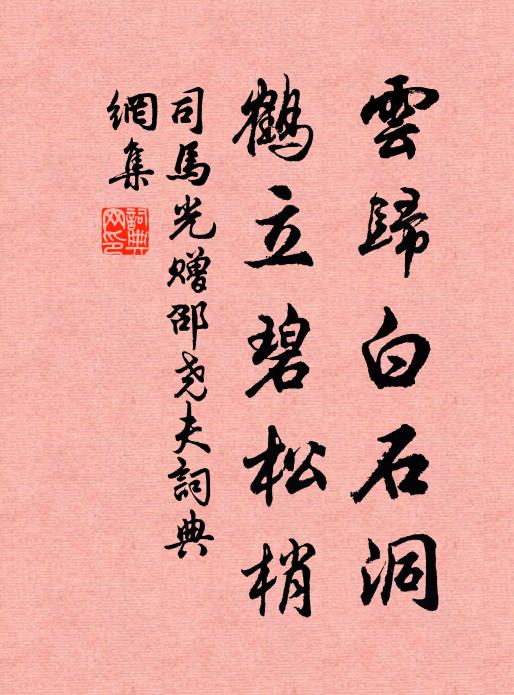 雲歸白石洞
鶴立碧松梢
司馬光贈邵尧夫詞典
網集
詞典網印